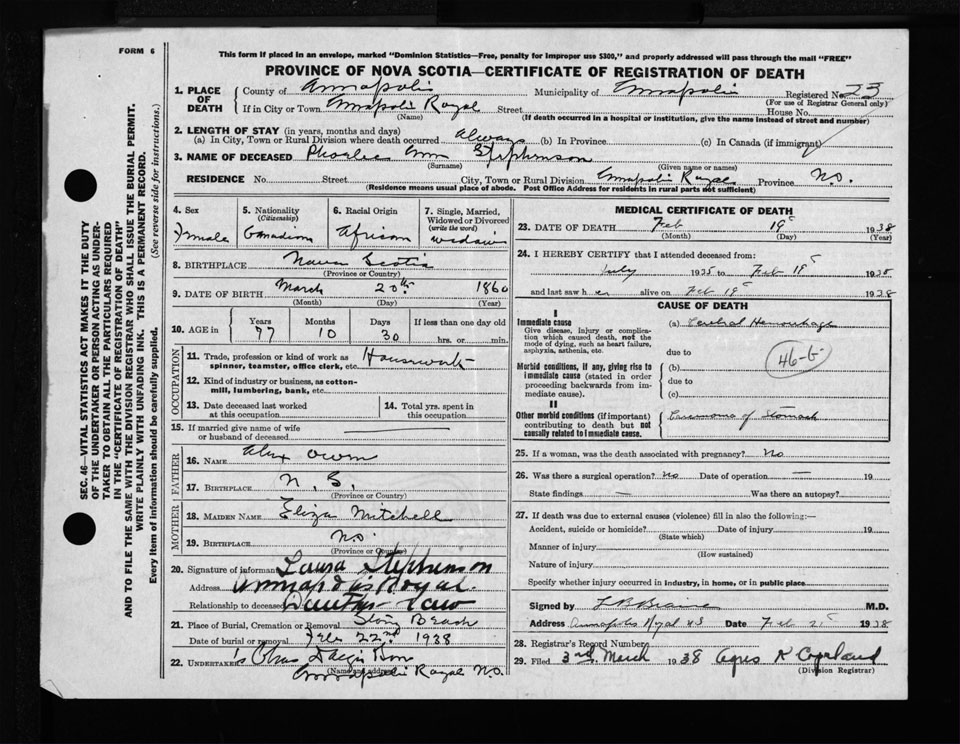 FORM 6
This form if placed in an envelope, marked "Dominion Statistics—Free, penalty for improper use $300," and properly addressed will pass through the mail "FREE"
PROVINCE OF NOVA SCOTIA—CERTIFICATE OF REGISTRATION OF DEATH
1. PLACE OF DEATH County of Annapolis Municipality of Annapolis Registered No. 23
(For use of Registrar General only)
If in City or Town Annapolis Royal Street House No.
(Name) (If death occurred in a hospital or institution, give the name instead of street and number)
2. LENGTH OF STAY (in years, months and days)
(a) In City, Town or Rural Division where death occurred Always (b) In Province (c) In Canada (if immigrant)
3. NAME OF DECEASED Phoebe Ann Stephenson
(Surname) (Given name or names)
RESIDENCE No. Street City, Town or Rural Division Annapolis Royal Province N.S.
(Residence means usual place of abode. Post Office Address for residents in rural parts not sufficient)
4. Sex 5. Nationality (Citizenship) 6. Racial Origin 7. Single, Married, Widowed or Divorced (write the word)
Female Canadian African widow
8. BIRTHPLACE Nova Scotia
(Province or Country)
9. DATE OF BIRTH March 20th 1860
(Month) (Day) (Year)
10. AGE in Years Months Days If less than one day old
77 10 30 hrs. or min.
OCCUPATION
11. Trade, profession or kind of work as spinner, teamster, office clerk, etc. Housework
12. Kind of industry or business, as cotton-mill, lumbering, bank, etc.
13. Date deceased last worked at this occupation
14. Total yrs. spent in this occupation
15. If married give name of wife or husband of deceased
FATHER
16. NAME Alex Owen
17. BIRTHPLACE N. S.
(Province or Country)
MOTHER
18. MAIDEN NAME Eliza Mitchell
19. BIRTHPLACE N.S.
(Province or Country)
20. Signature of informant Laura Stephenson
Address Annapolis Royal
Relationship to deceased
21. Place of Burial, Cremation or Removal Stony Beach
Date of burial or removal Feb 22nd 1938
22. UNDERTAKER
Annapolis Royal N.S.
(Name and Address)
MEDICAL CERTIFICATE OF DEATH
23. DATE OF DEATH Feb 19 1938
(Month) (Day) (Year)
24. I HEREBY CERTIFY that I attended deceased from:
July 1935 to Feb 19 1938
and last saw her alive on Feb 19 1938
CAUSE OF DEATH
I
Immediate cause
Give disease, injury or complication which caused death, not the mode of dying, such as heart failure, asphyxia, asthenia, etc.
(a) Cerebral Hemorrhage
due to
Morbid conditions, if any, giving rise to immediate cause (stated in order proceeding backwards from immediate cause).
(b)
due to
(c)
46-G
II
Other morbid conditions (if important) contributing to death but not causally related to immediate cause.
Carcinoma of Stomach
25. If a woman, was the death associated with pregnancy? No
26. Was there a surgical operation? No Date of operation — 19
State findings — Was there an autopsy?
27. If death was due to external causes (violence) fill in also the following:—
Accident, suicide or homicide? Date of injury 19
(State which)
Manner of injury
(How sustained)
Nature of injury
Specify whether injury occurred in industry, in home, or in public place
Signed by M.D.
Address Annapolis Royal N S Date Feb 21 1938
28. Registrar's Record Number
29. Filed 3rd March 1938 Agnes K Copeland
(Division Registrar)
SEC. 46—VITAL STATISTICS ACT MAKES IT THE DUTY
OF THE UNDERTAKER OR PERSON ACTING AS UNDER-
TAKER TO OBTAIN ALL THE PARTICULARS REQUIRED
IN THE "CERTIFICATE OF REGISTRATION OF DEATH"
AND TO FILE THE SAME WITH THE DIVISION REGISTRAR WHO SHALL ISSUE THE BURIAL PERMIT.
WRITE PLAINLY WITH UNFADING INK. THIS IS A PERMANENT RECORD.
Every item of information should be carefully supplied. (See reverse side for instructions.)